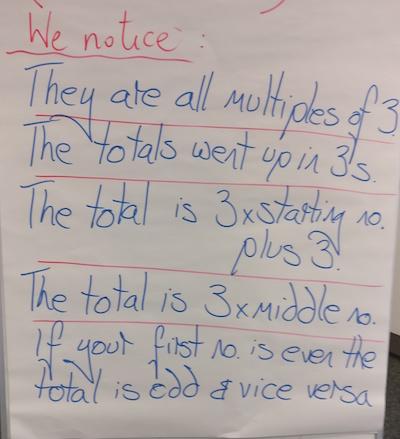 We notice :
They are all multiples of 3
The totals went up in 3's.
The total is 3xstarting no.
plus 3.
The total is 3xmiddle no.
If your first no. is even the
total is odd & vice versa